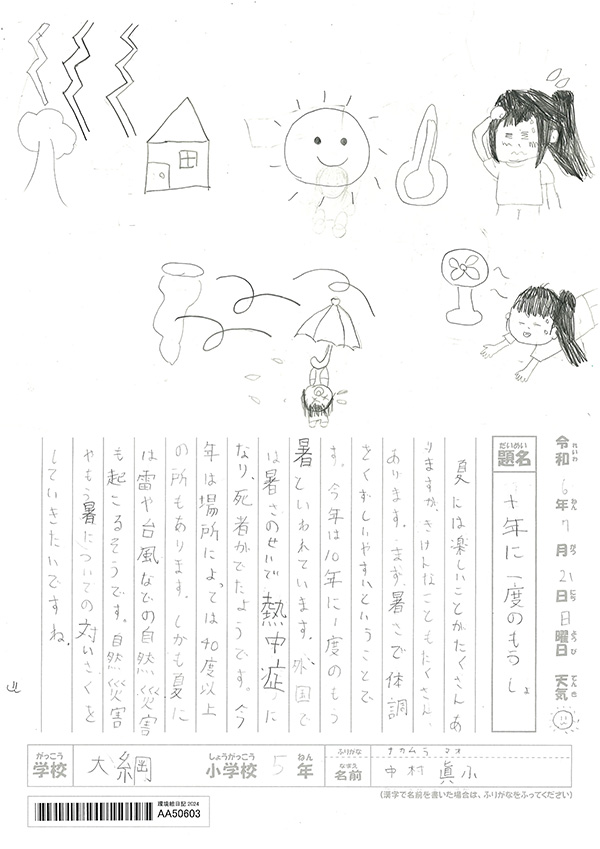 令和6年7月21日日曜日 天気
れいわ ねん がつ にち ようび てんき
だいめい
題名 十年に一度のもうしょ
夏には楽しいことがたくさんあ
りますが、きけんなこともたくさん
あります。まず、暑さで体調
をくずしいやすいということで
す。今年は10年に1度のもう
暑といわれています。外国で
は暑さのせいで熱中症に
なり、死者がでたようです。今
年は場所によっては40度以上
の所もあります。しかも夏に
は雷や台風などの自然災害
も起こるそうです。自然災害
やもう暑についての対いさくを
していきたいですね。
がっこう しょうがっこう ねん ふりがな ナカムラ マオ
学校 大綱 小学校 5年 なまえ 名前 中村
(漢字で名前を書いた場合は、ふりがなをふってください)
環境絵日記 2024
AA50603